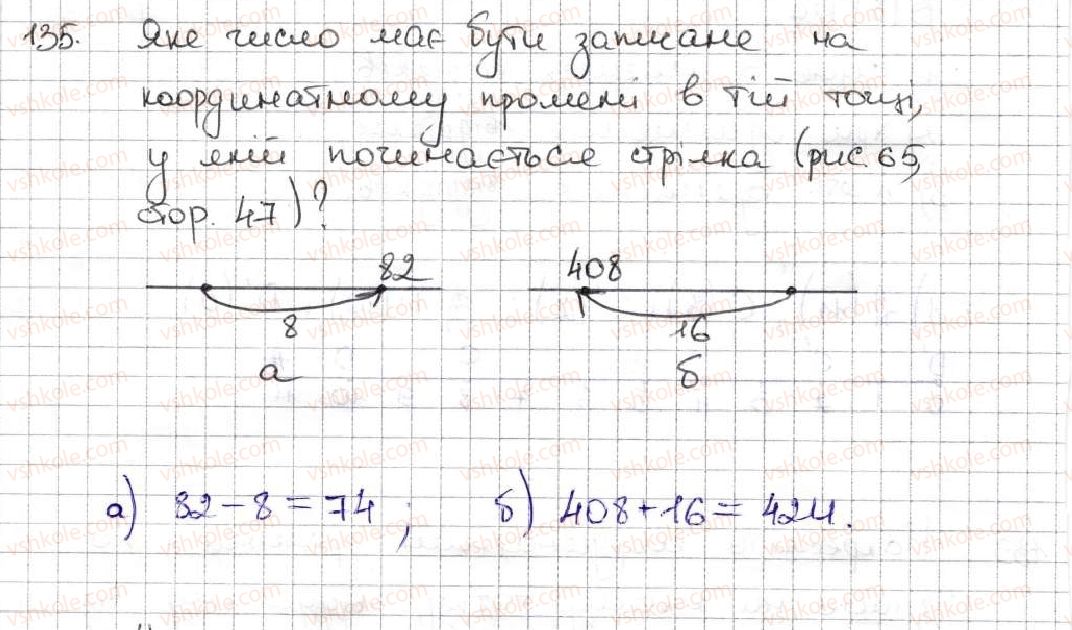 135. Яке число має бути записане на
координатному промені в тій точці,
у якій починається стрілка (рис. 65,
стор. 47)?
82
408
8
16
а
б
а) 82 - 8 = 74 ; б) 408 + 16 = 424.
vshkole.com